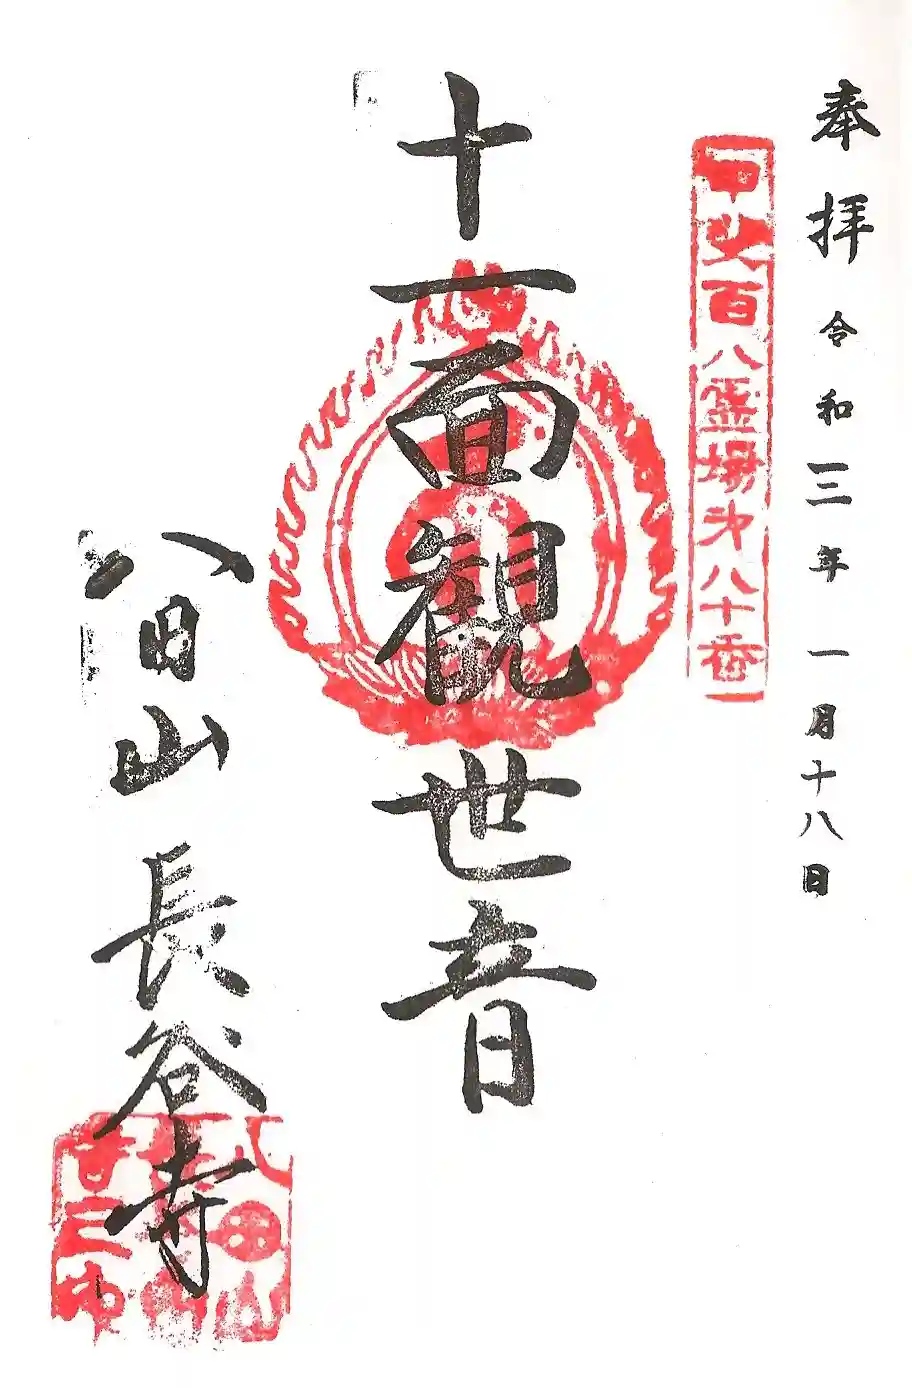 奉拝 令和三年 一月十八日
甲斐百八霊場第八十番
十一面観世音
八田山 長谷寺